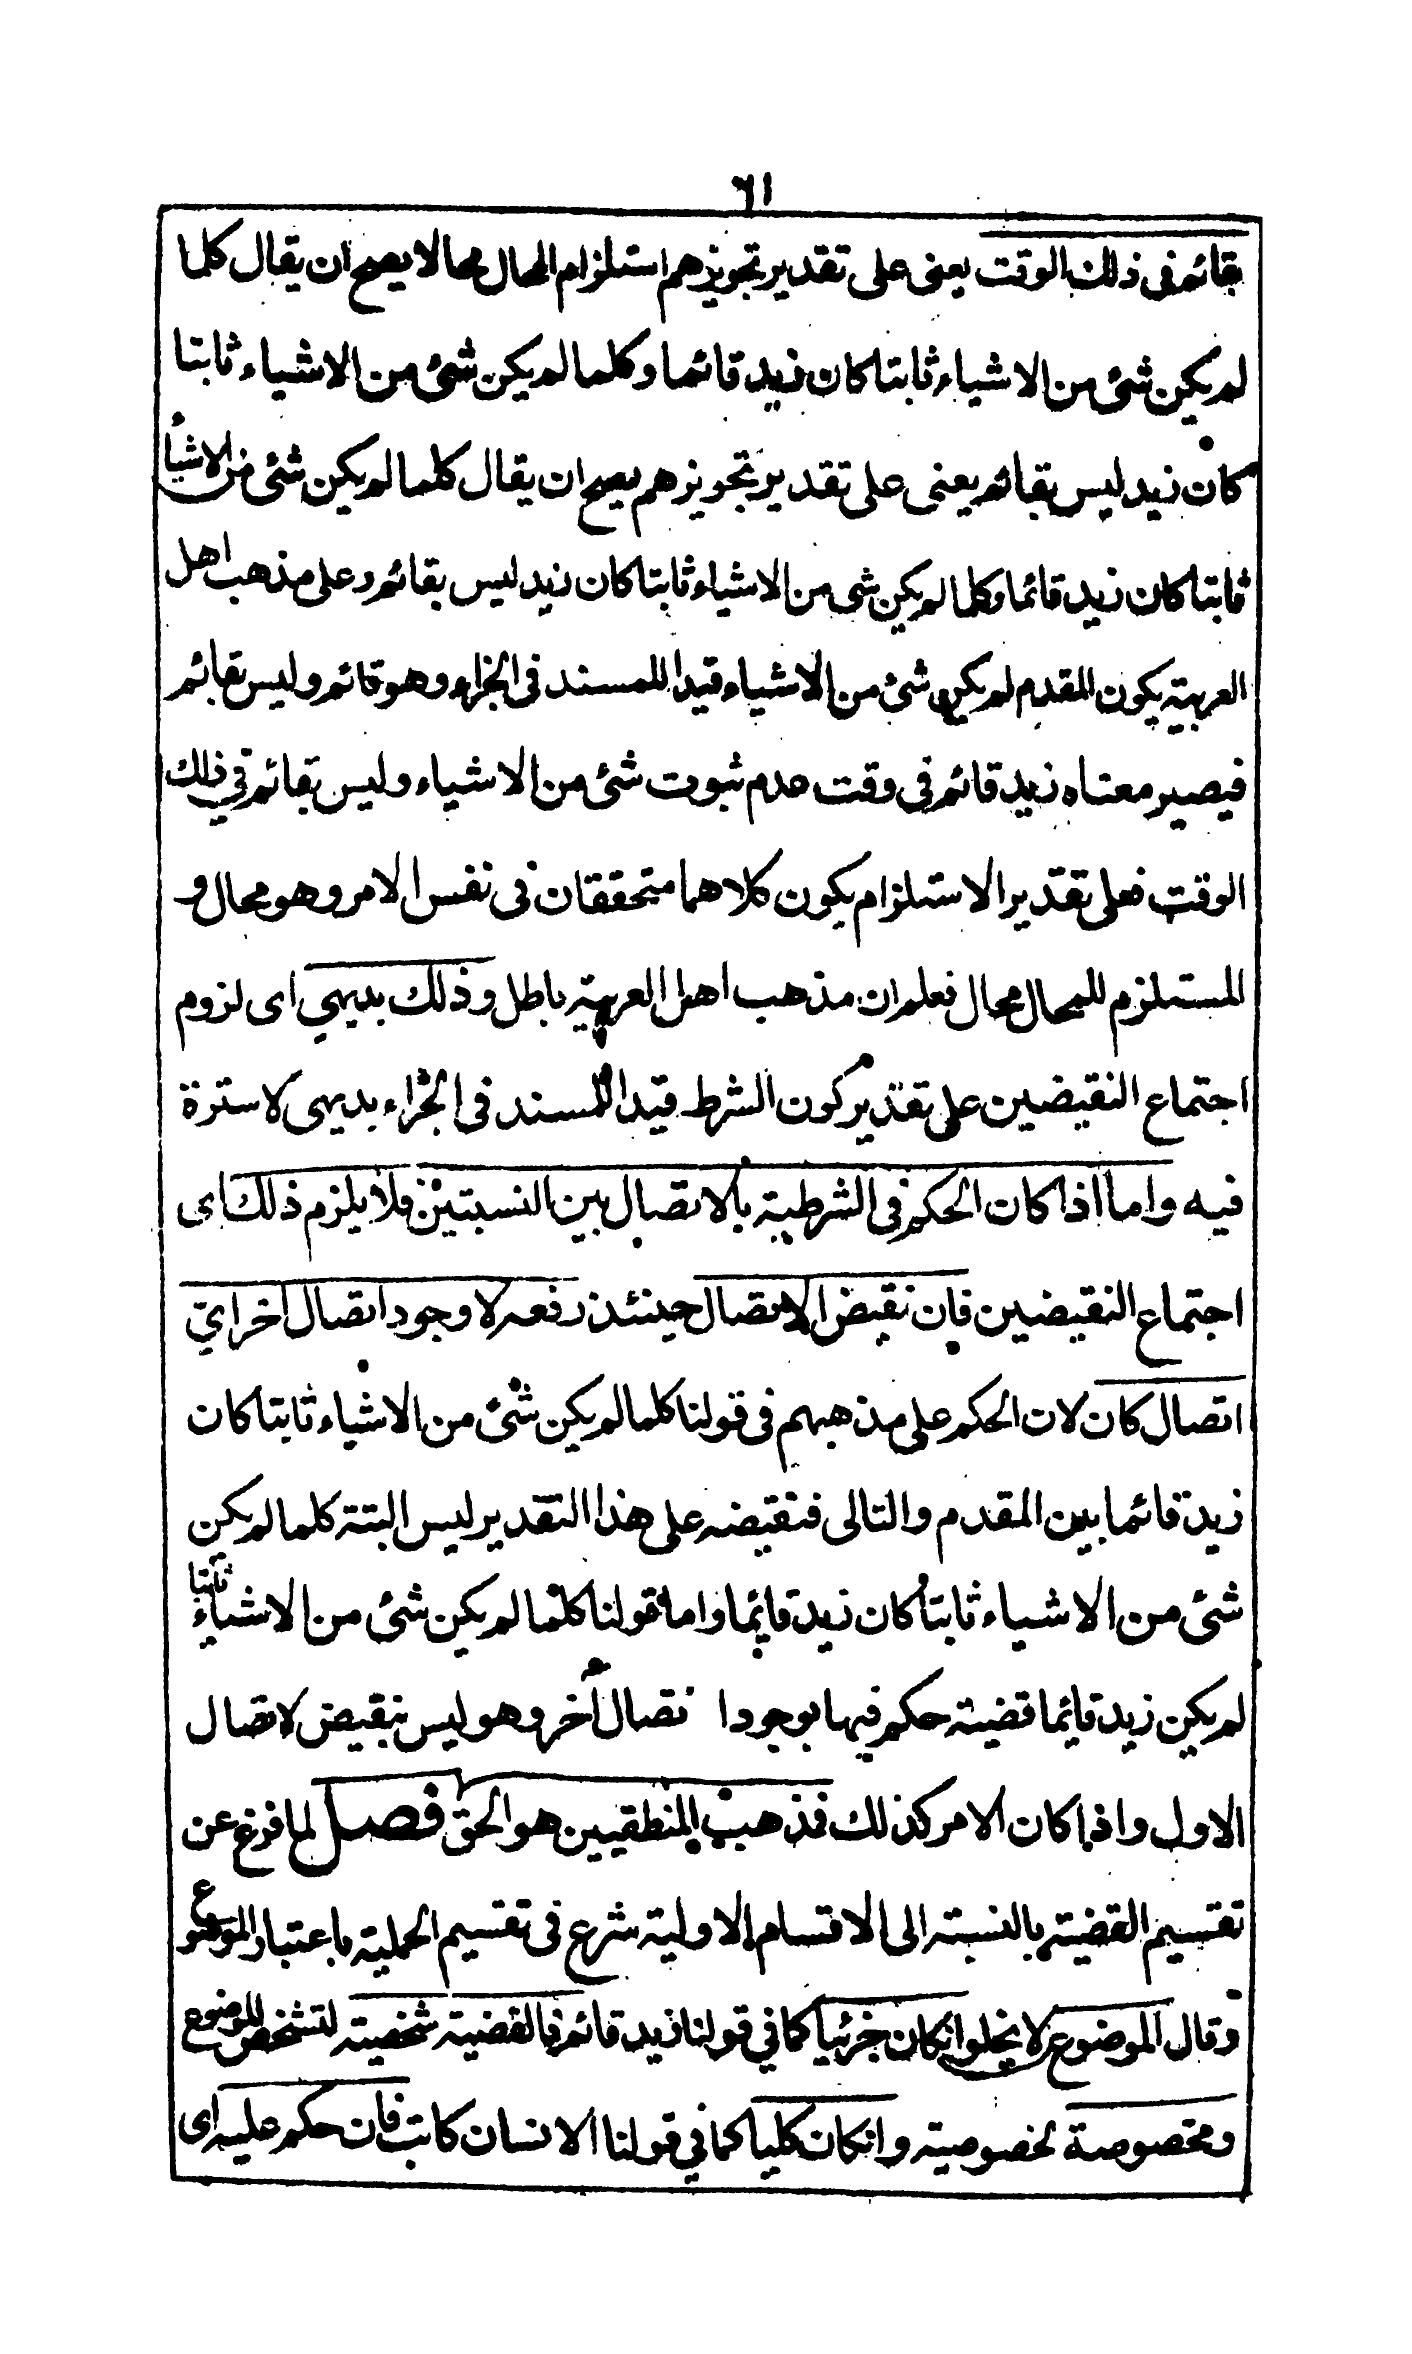 ٦١
بقائم فى ذلك الوقت يعنى على تقدير تجويزهم استلزام المحال محالا يصح ان يقال كلما
لم يكن شئ من الاشياء ثابتا كان زيد قائما وكلما لم يكن شئ من الاشياء ثابتا
كان زيد ليس بقائم يعنى على تقدير تجويزهم يصح ان يقال كلما لم يكن شئ من الاشيا
ثابتا كان زيد قائما وكلما لم يكن شى من الاشياء ثابتا كان زيد ليس بقائم وعلى مذهب اهل
العربية يكون المقدم لم يكن شئ من الاشياء قيدا للمسند فى الجزاء وهو قائم وليس بقائم
فيصير معناه زيد قائم فى وقت عدم ثبوت شئ من الاشياء وليس بقائم في ذلك
الوقت فعلى تقدير الاستلزام يكون كلاهما متحققان فى نفس الامر وهو محال و
المستلزم للمحال محال فعلم ان مذهب اهل العربية باطل وذلك بديهي اى لزوم
اجتماع النقيضين على تقدير كون الشرط قيدا للمسند فى الجزاء بديهى لا سترة
فيه واما اذا كان الحكم فى الشرطية بالاتصال بين النسبتين فلا يلزم ذلك اى
اجتماع النقيضين فان نقيض الاتصال حينئذ رفعه لا وجود اتصال اخر اي
اتصال كان لان الحكم على مذهبهم فى قولنا كلما لم يكن شئ من الاشياء ثابتا كان
زيد قائما بين المقدم والتالى فنقيضه على هذا التقدير ليس البتة كلما لم يكن
شئ من الاشياء ثابتا كان زيد قائما واما قولنا كلما لم يكن شئ من الاشياء ثابتا
لم يكن زيد قائما قضية حكم فيها بوجود ا تصال أخر وهو ليس بنقيض لاتصال
الاول واذا كان الامر كذلك فمذهب المنطقيين هو الحق فصل لما فرغ عن
تقسيم القضية بالنسبة الى الاقسام الاولية شرع فى تقسيم الحملية باعتبار الموضوع
وقال الموضوع لا يخلوا انكان جزئيا كما في قولنا زيد قائم فالقضية شخصية لتشخص الموضوع
ومخصوصة لخصوصيته وانكان كليا كما في قولنا الانسان كاتب فان حكم عليه اى